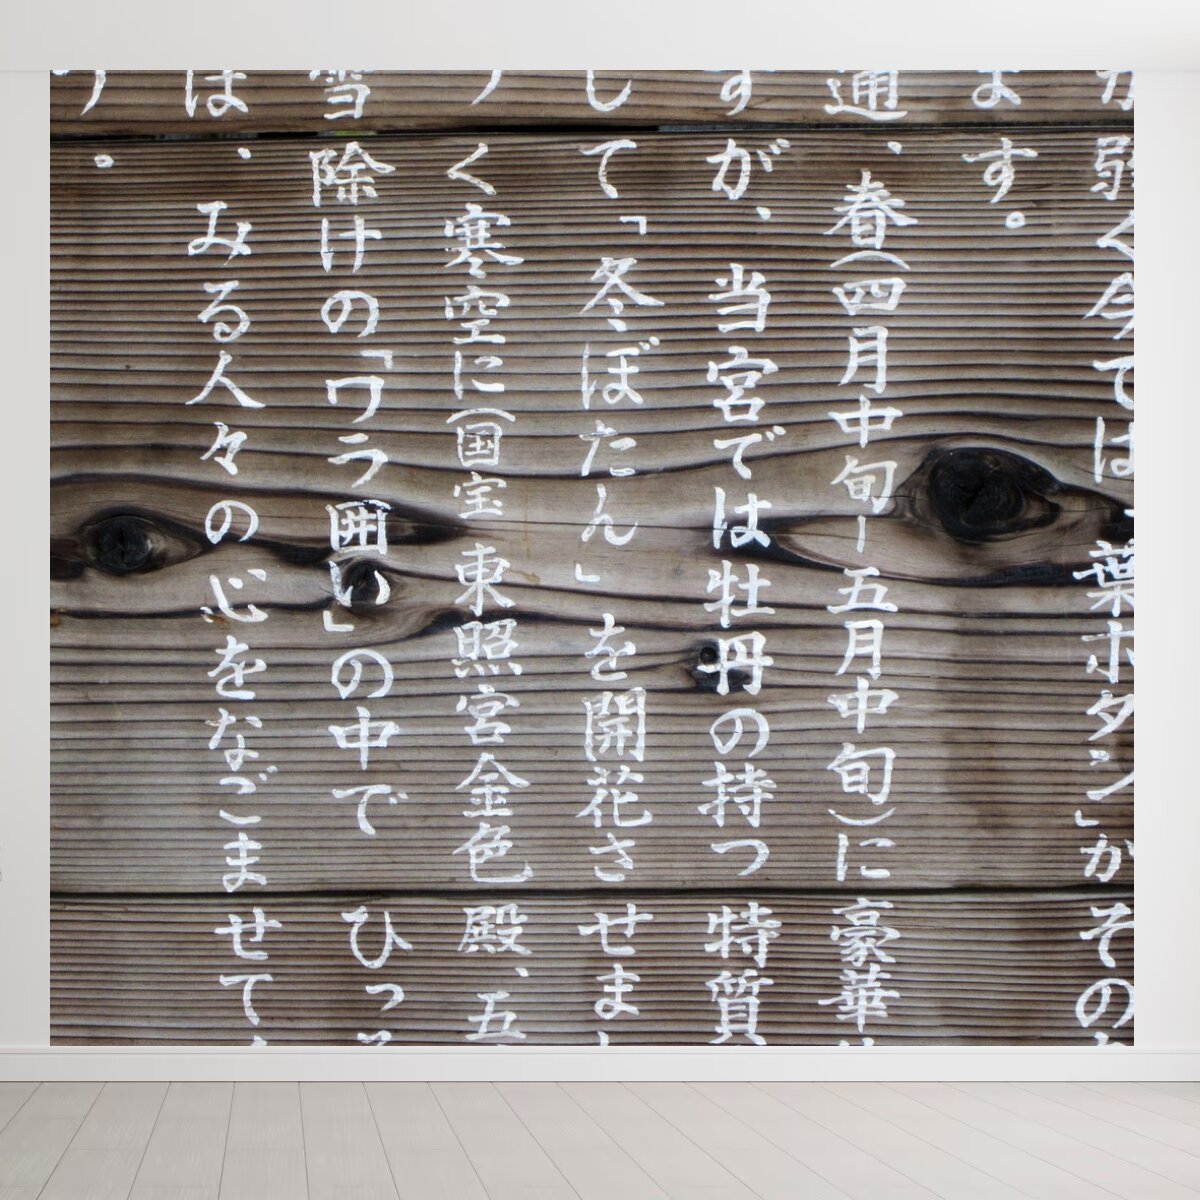 弱く今では、「葉ボタン」が その
す。
通、春(四月中旬ー五月中旬)に 豪華
すが、当宮では牡丹の持つ 特質
して「冬ぼたん」を開花させまし
く寒空に(国宝 東照宮金色 殿、五
雪除けの「ワラ囲い」の中で ひっそ
は、みる人々の心をなごませて
う。